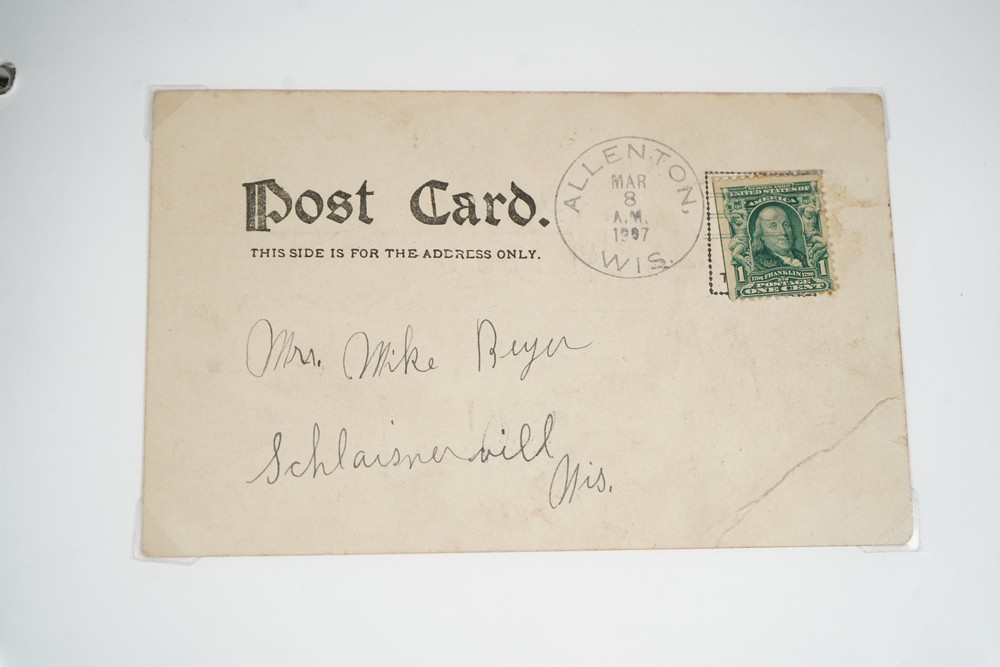 Post Card.
THIS SIDE IS FOR THE ADDRESS ONLY.
ALLENTON,
MAR
8
A.M.
1907
WIS.
SERIES 1902
UNITED STATES OF
AMERICA
1 1706 FRANKLIN 1790 1
POSTAGE
ONE CENT
Mrs. Mike Beyer
Schlaisnerwill
Wis.